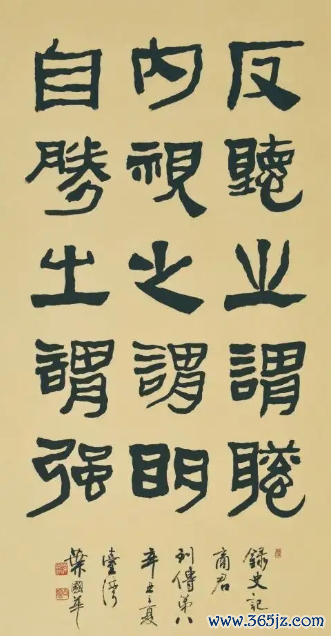 反聽之謂聰
內視之謂明
自勝之謂强
錄史記
商君
列傳第八
辛丑夏
臺灣
葉國華
www.365jz.com